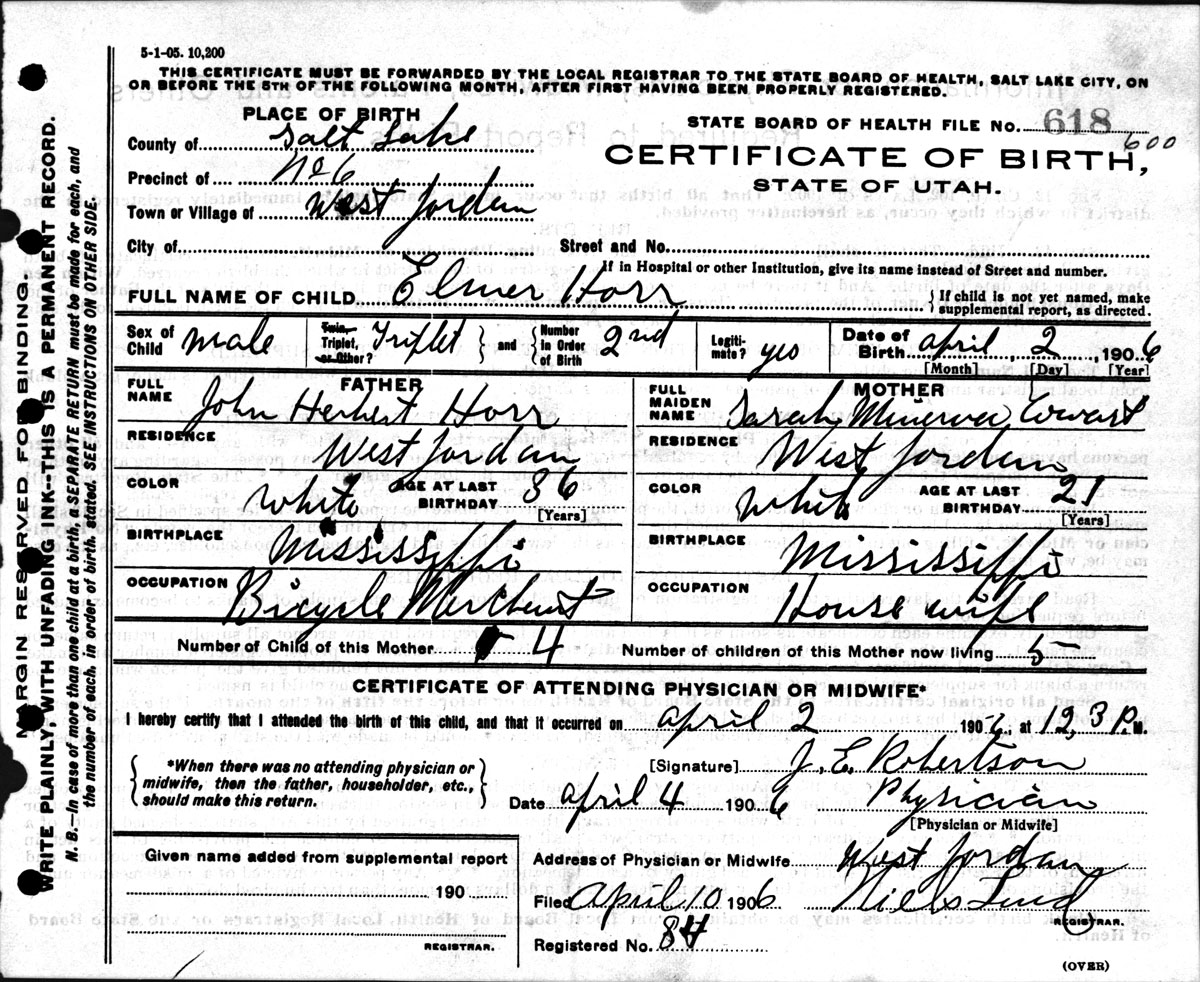 5-1-05. 10,200
THIS CERTIFICATE MUST BE FORWARDED BY THE LOCAL REGISTRAR TO THE STATE BOARD OF HEALTH, SALT LAKE CITY, ON
OR BEFORE THE 5TH OF THE FOLLOWING MONTH, AFTER FIRST HAVING BEEN PROPERLY REGISTERED.
PLACE OF BIRTH
County of Salt Lake
Precinct of No 6
Town or Village of West Jordan
STATE BOARD OF HEALTH FILE No. 618
600
CERTIFICATE OF BIRTH,
STATE OF UTAH.
City of Street and No.
If in Hospital or other Institution, give its name instead of Street and number.
FULL NAME OF CHILD Elmer Horr { If child is not yet named, make
supplemental report, as directed.
Sex of Child male Twin, Triplet, or Other? Triplet } and { Number in Order of Birth 2nd Legiti-mate? yes Date of Birth april 2 1906
[Month] [Day] [Year]
FATHER
FULL NAME John Herbert Horr
RESIDENCE West Jordan
COLOR White AGE AT LAST BIRTHDAY 36
[Years]
BIRTHPLACE Mississippi
OCCUPATION Bicycle Merchant
MOTHER
FULL MAIDEN NAME Sarah Minerva Ewart
RESIDENCE West Jordan
COLOR White AGE AT LAST BIRTHDAY 21
[Years]
BIRTHPLACE Mississippi
OCCUPATION House wife
Number of Child of this Mother 4 Number of children of this Mother now living 5
CERTIFICATE OF ATTENDING PHYSICIAN OR MIDWIFE*
I hereby certify that I attended the birth of this child, and that it occurred on april 2 1906, at 12,3 P. M.
{ *When there was no attending physician or
midwife, then the father, householder, etc.,
should make this return. }
[Signature] J. E. Robertson
Date april 4 1906 Physician
[Physician or Midwife]
Given name added from supplemental report
190
REGISTRAR.
Address of Physician or Midwife West Jordan
Filed April 10 1906 Niels Lind
REGISTRAR.
Registered No. 84
(OVER)
MARGIN RESERVED FOR BINDING.
WRITE PLAINLY, WITH UNFADING INK--THIS IS A PERMANENT RECORD.
N. B. In case of more than one child at a birth, a SEPARATE RETURN must be made for each, and
the number of each, in order of birth, stated. SEE INSTRUCTIONS ON OTHER SIDE.